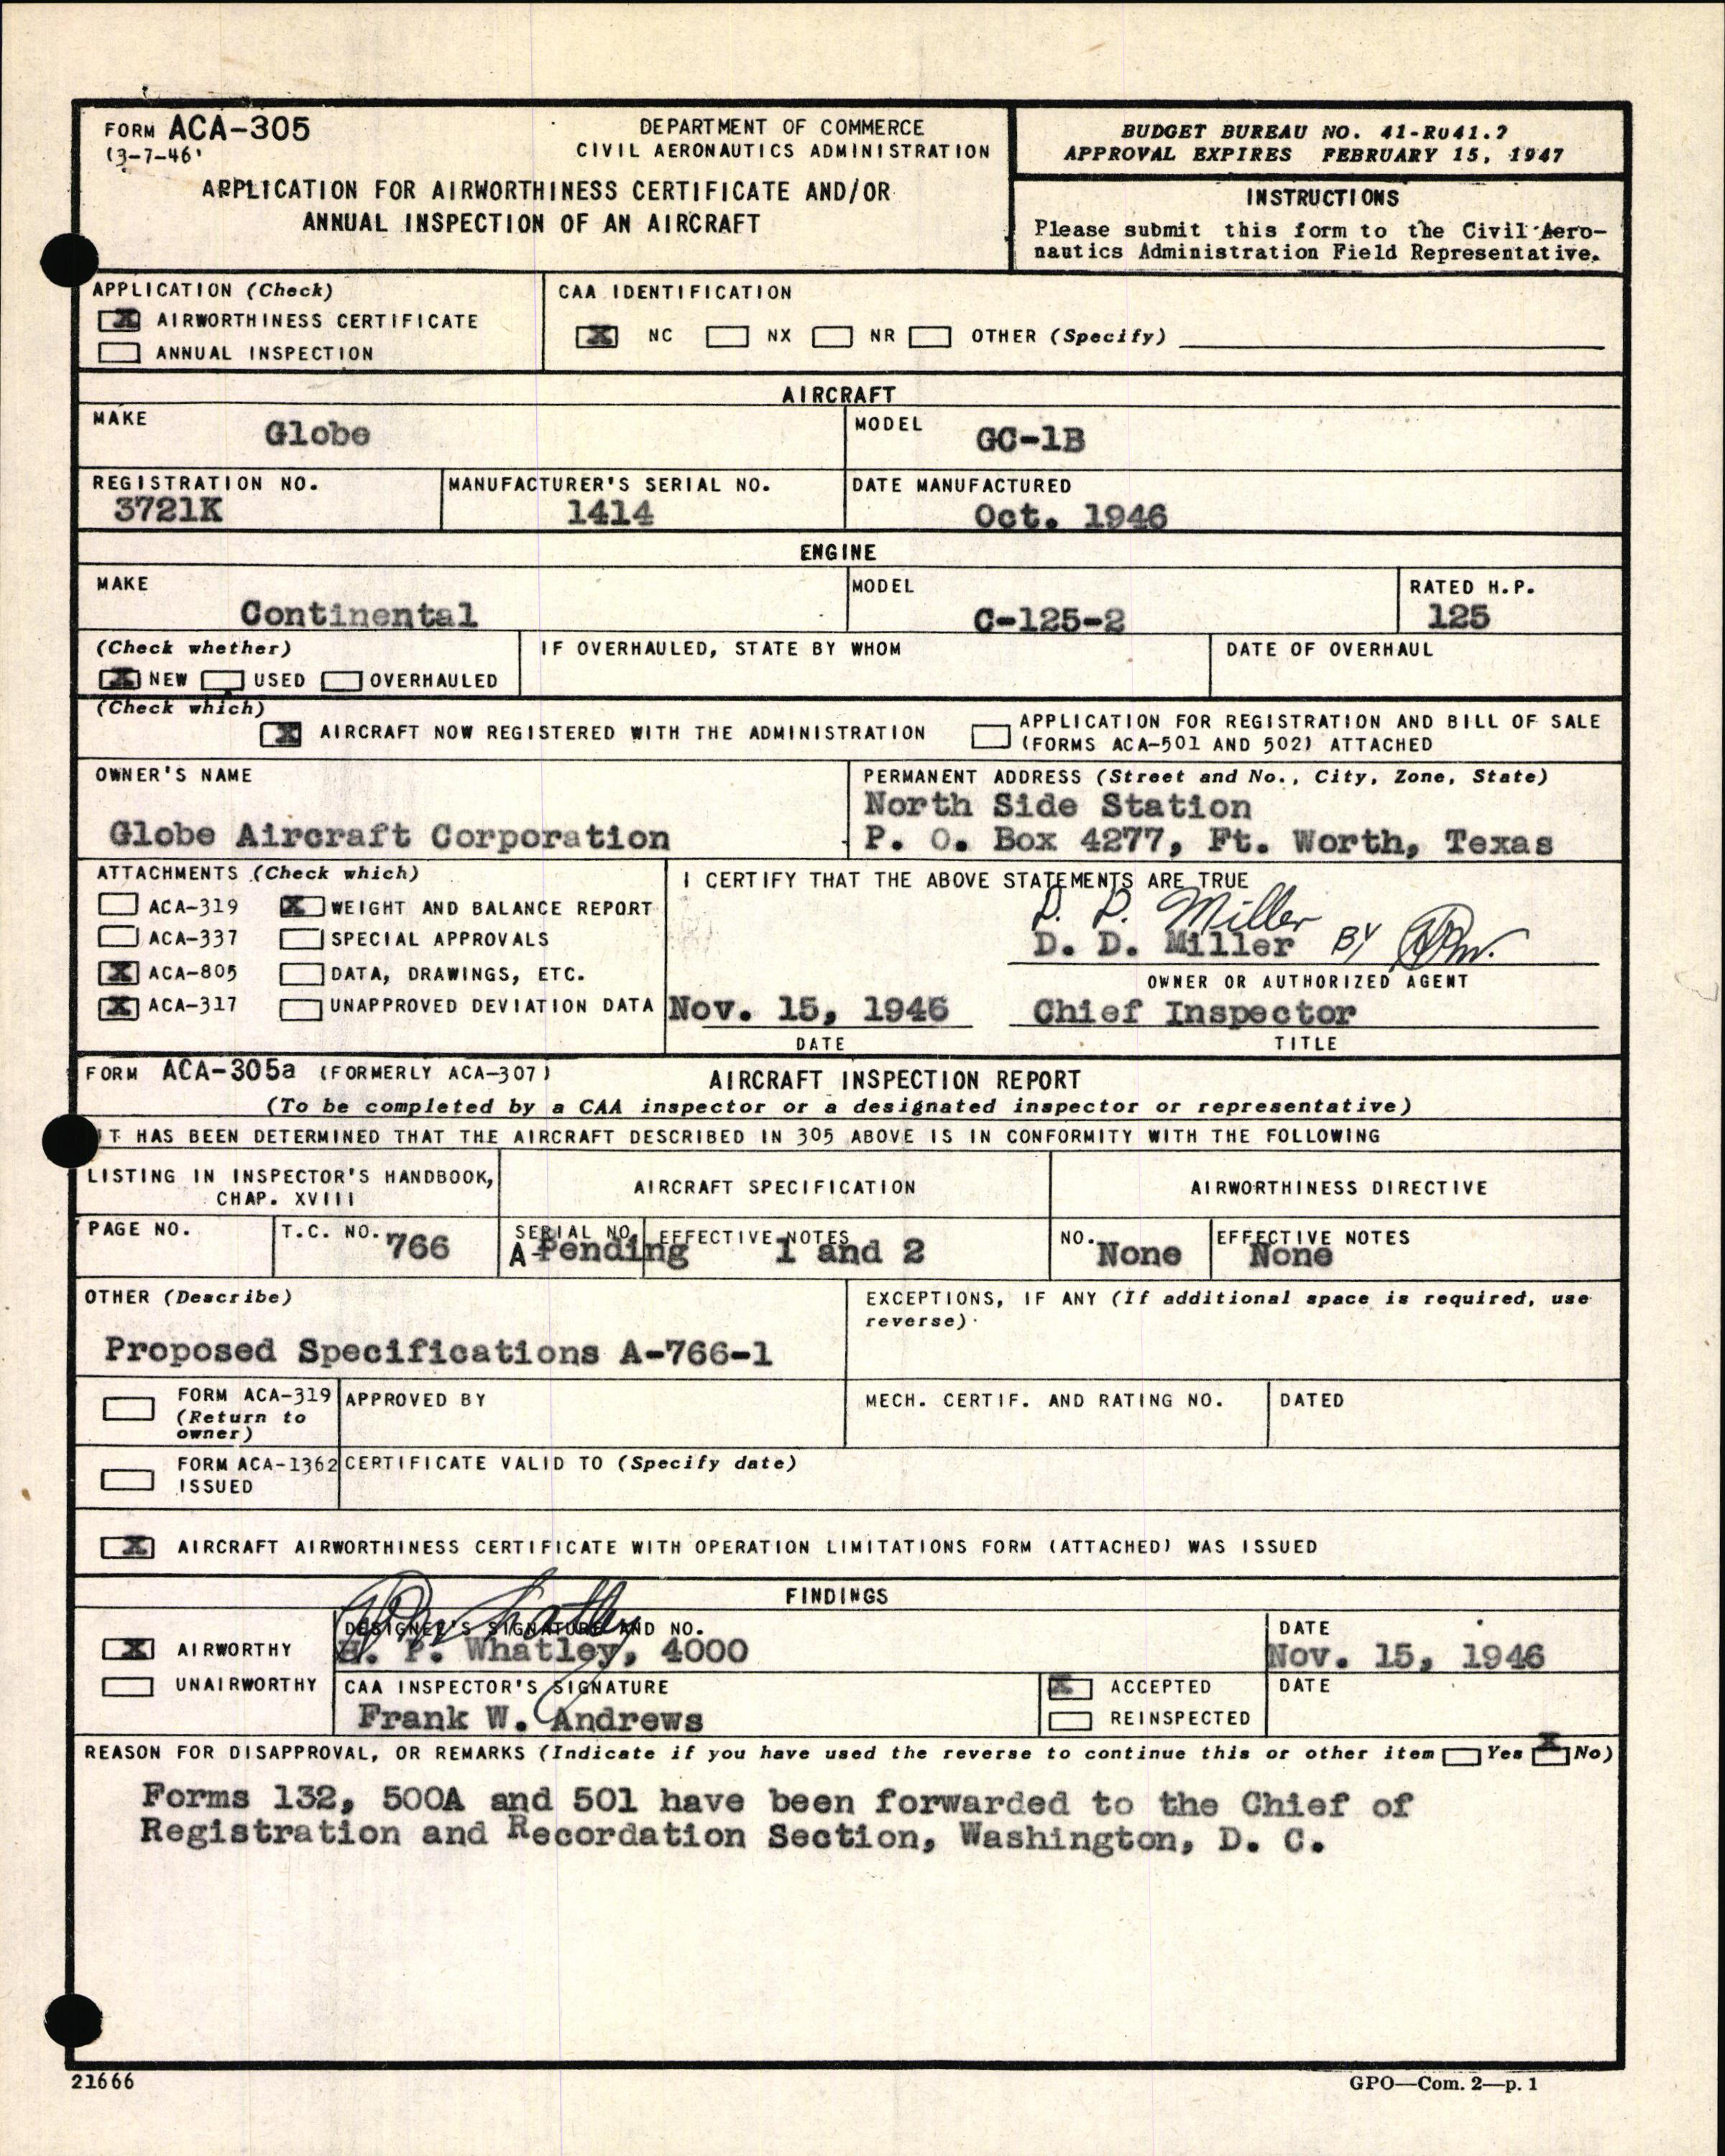 FORM ACA-305
(3-7-46)
DEPARTMENT OF COMMERCE
CIVIL AERONAUTICS ADMINISTRATION
APPLICATION FOR AIRWORTHINESS CERTIFICATE AND/OR
ANNUAL INSPECTION OF AN AIRCRAFT
BUDGET BUREAU NO. 41-R041.2
APPROVAL EXPIRES FEBRUARY 15, 1947
INSTRUCTIONS
Please submit this form to the Civil Aero-
nautics Administration Field Representative.
APPLICATION (Check)
X AIRWORTHINESS CERTIFICATE
ANNUAL INSPECTION
CAA IDENTIFICATION
X NC NX NR OTHER (Specify)
AIRCRAFT
MAKE
Globe
MODEL
GC-1B
REGISTRATION NO.
3721K
MANUFACTURER'S SERIAL NO.
1414
DATE MANUFACTURED
Oct. 1946
ENGINE
MAKE
Continental
MODEL
C-125-2
RATED H.P.
125
(Check whether)
X NEW USED OVERHAULED
IF OVERHAULED, STATE BY WHOM
DATE OF OVERHAUL
(Check which)
X AIRCRAFT NOW REGISTERED WITH THE ADMINISTRATION
APPLICATION FOR REGISTRATION AND BILL OF SALE
(FORMS ACA-501 AND 502) ATTACHED
OWNER'S NAME
Globe Aircraft Corporation
PERMANENT ADDRESS (Street and No., City, Zone, State)
North Side Station
P. O. Box 4277, Ft. Worth, Texas
ATTACHMENTS (Check which)
ACA-319 X WEIGHT AND BALANCE REPORT
ACA-337 SPECIAL APPROVALS
X ACA-805 DATA, DRAWINGS, ETC.
X ACA-317 UNAPPROVED DEVIATION DATA
I CERTIFY THAT THE ABOVE STATEMENTS ARE TRUE
D. D. Miller
D. D. Miller BY
OWNER OR AUTHORIZED AGENT
Nov. 15, 1946 Chief Inspector
DATE TITLE
FORM ACA-305a (FORMERLY ACA-307)
AIRCRAFT INSPECTION REPORT
(To be completed by a CAA inspector or a designated inspector or representative)
IT HAS BEEN DETERMINED THAT THE AIRCRAFT DESCRIBED IN 305 ABOVE IS IN CONFORMITY WITH THE FOLLOWING
LISTING IN INSPECTOR'S HANDBOOK,
CHAP. XVIII
AIRCRAFT SPECIFICATION
AIRWORTHINESS DIRECTIVE
PAGE NO.
T.C. NO. 766
SERIAL NO.
A-Pending
EFFECTIVE NOTES
1 and 2
NO. None
EFFECTIVE NOTES
None
OTHER (Describe)
Proposed Specifications A-766-1
EXCEPTIONS, IF ANY (If additional space is required, use
reverse)
FORM ACA-319
(Return to
owner)
APPROVED BY
MECH. CERTIF. AND RATING NO.
DATED
FORM ACA-1362
ISSUED
CERTIFICATE VALID TO (Specify date)
X AIRCRAFT AIRWORTHINESS CERTIFICATE WITH OPERATION LIMITATIONS FORM (ATTACHED) WAS ISSUED
FINDINGS
X AIRWORTHY
UNAIRWORTHY
DESIGNEE'S SIGNATURE AND NO.
H. P. Whatley, 4000
DATE
Nov. 15, 1946
CAA INSPECTOR'S SIGNATURE
Frank W. Andrews
X ACCEPTED
REINSPECTED
DATE
REASON FOR DISAPPROVAL, OR REMARKS (Indicate if you have used the reverse to continue this or other item Yes X No)
Forms 132, 500A and 501 have been forwarded to the Chief of
Registration and Recordation Section, Washington, D. C.
21666
GPO—Com. 2—p. 1